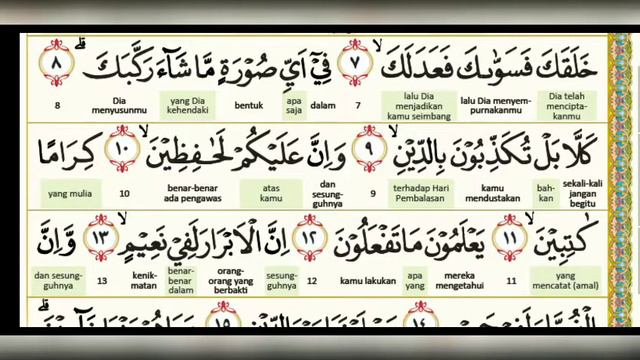 خَلَقَكَ فَسَوّٰىكَ فَعَدَلَكَۙ ٧ فِيْٓ اَيِّ صُوْرَةٍ مَّا شَاۤءَ رَكَّبَكَۗ ٨
Dia telah mencipta-kanmu lalu Dia menyem-purnakanmu lalu Dia menjadikan kamu seimbang 7 dalam apa saja bentuk yang Dia kehendaki Dia menyusunmu 8
كَلَّا بَلْ تُكَذِّبُوْنَ بِالدِّيْنِۙ ٩ وَاِنَّ عَلَيْكُمْ لَحٰفِظِيْنَۙ ١٠ كِرَامًا
sekali-kali jangan begitu bah-kan kamu mendustakan terhadap Hari Pembalasan 9 dan sesung-guhnya atas kamu benar-benar ada pengawas 10 yang mulia
كٰتِبِيْنَۙ ١١ يَعْلَمُوْنَ مَا تَفْعَلُوْنَ ١٢ اِنَّ الْاَبْرَارَ لَفِيْ نَعِيْمٍۙ ١٣ وَّاِنَّ
yang mencatat (amal) 11 mereka mengetahui apa yang kamu lakukan 12 sesung-guhnya orang-orang yang berbakti benar-benar dalam kenik-matan 13 dan sesung-guhnya
١٤ ١٥